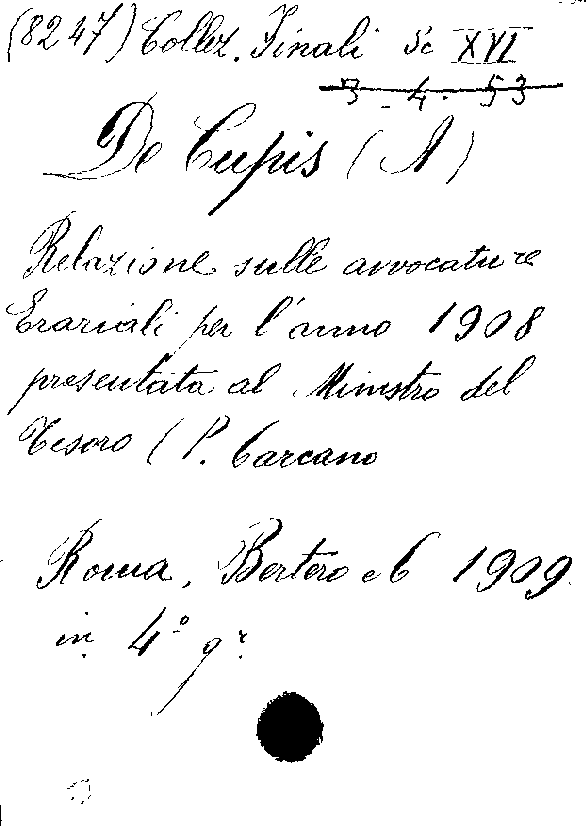 (8247) Collez. Finali Sc XVI
3-4-53
De Cupis (A)
Relazione sulle avvocature
Erariali per l'anno 1908
presentata al Ministro del
Tesoro (P. Carcano
Roma, Bertero e C 1909.
in 4° gr.